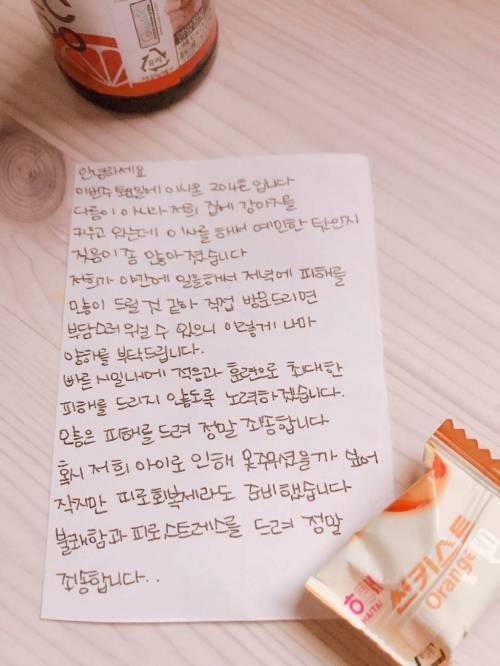 C
안녕하세요
이번주 토요일에 이사온 204호 입니다
다름이 아니라 저희 집에 강아지를
키우고 있는데 이사를 해서 예민한 탓인지
짖음이 좀 많아 졌습니다
저희가 야간에 일을해서 저녁에 피해를
많이 드릴 것 같아 직접 방문드리면
부담스러 워할 수 있으니 이렇게 나마
양해를 부탁드립니다.
빠른 시일내에 적응과 훈련으로 최대한
피해를 드리지 않도록 노력하겠습니다.
오늘은 피해를 드려 정말 죄송합니다
혹시 저희 아이로 인해 못주무셨을까 싶어
작지만 피로회복제라도 준비했습니다
불쾌함과 피로,스트레스를 드려 정말
죄송합니다..
해태
HAITAI
썬키스트
Orange